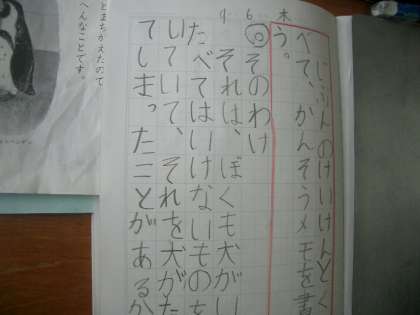 木
じぶんのけいけんとく
べて、かんそうメモを書
う。
9 6
そのわけ
それは、ぼくも犬がい
たべてはいけないものを
していて、それを犬がた
てしまったことがあるか
とまちがえたので
へんなことです。